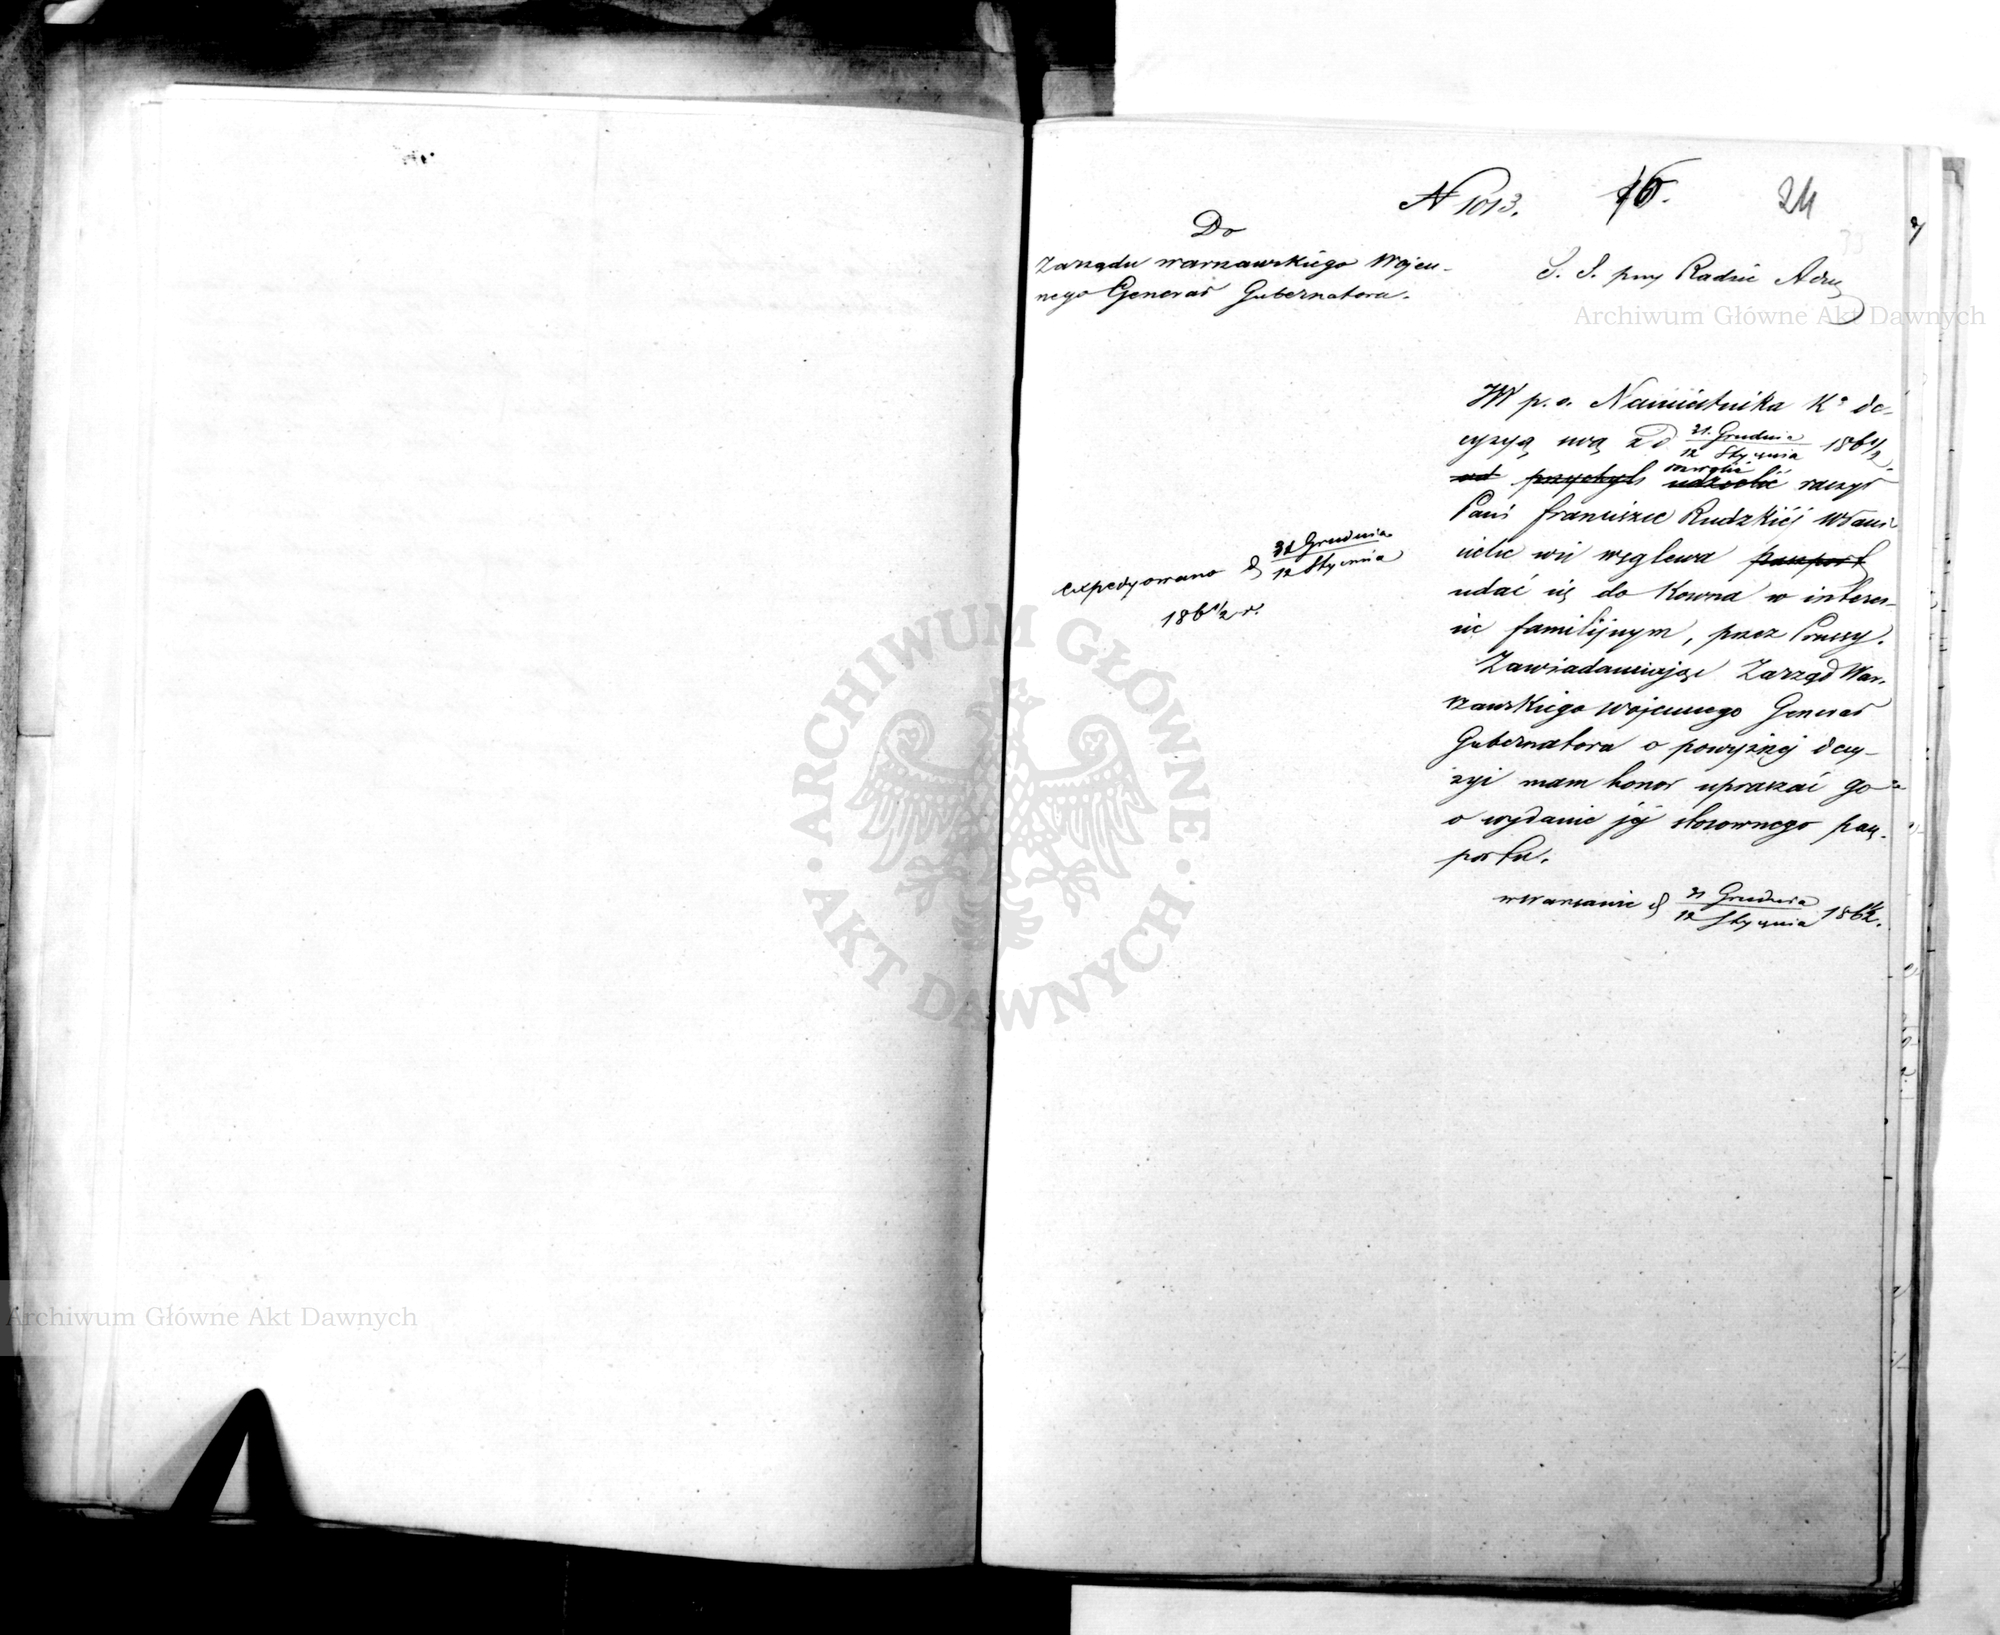 N 1013.
16.
24
Do
Zarządu warszawskiego Wojen-
nego Generał Gubernatora.
S. S. przy Radzie Adm
Archiwum Główne Akt Dawnych
JW p. o. Namiestnika K° de-
cyzyą swą z d 31. Grudnia / 12 Stycznia 1861/2
od przychyl udzielić zezwolić raczył
Pani Franciszce Rudzkiéj Właści
cielce wsi Węglewa paszport
udać się do Kowna w intere-
sie familijnym, przez Prussy.
expedyowano d 31 Grudnia / 12 Stycznia
1861/2 r.
Zawiadamiając Zarząd War-
szawskiego Wojennego Generał
Gubernatora o powyższej decy-
zyi mam honor upraszać go
o wydanie jéj stosownego pas-
portu.
w Warszawie d 31 Grudnia / 12 Stycznia 1861/2.
ARCHIWUM GŁÓWNE
AKT DAWNYCH
Archiwum Główne Akt Dawnych